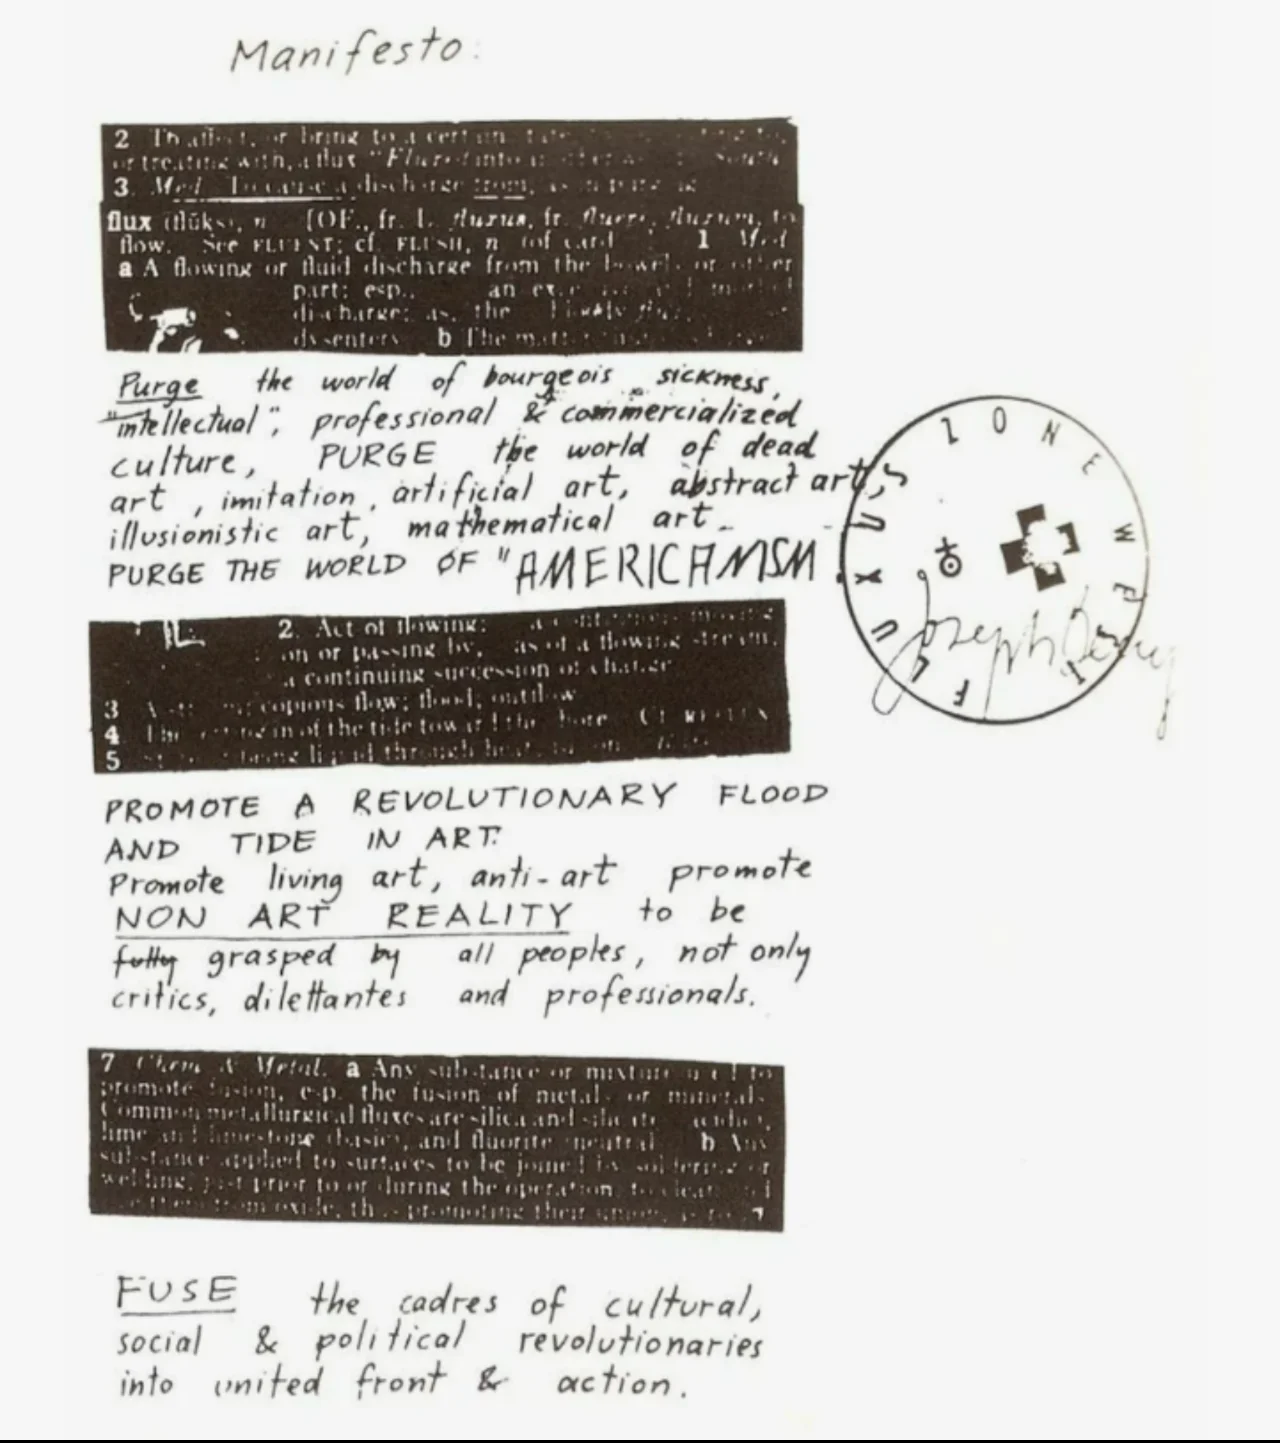 Manifesto:
2 To affect, or bring to a certain state
or treating with, a flux "Fluxed into
3 Med. To cause a discharge from, as in purging
flux (flŭks), n. [OF., fr. L. fluxus, fr. fluere, fluxum, to
flow. See FLUENT; cf. FLUSH, n. (of card 1 Med.
a A flowing or fluid discharge from the bowels or other
part; esp., an discharge; as, the bloody flux
b The matter
Purge the world of bourgeois sickness,
"intellectual", professional & commercialized
culture, PURGE the world of dead
art, imitation, artificial art, abstract art,
illusionistic art, mathematical art
PURGE THE WORLD OF "AMERICANISM
FLUXUS ZONE WEST
Joseph Beuys
2. Act of flowing:
on or passing by, as of a flowing stream;
a continuing succession of change
3 copious flow; flood; outflow
4 The setting in of the tide toward the shore
5
PROMOTE A REVOLUTIONARY FLOOD
AND TIDE IN ART.
Promote living art, anti-art promote
NON ART REALITY to be
fully grasped by all peoples, not only
critics, dilettantes and professionals.
7 Chem. & Metal. a Any substance or mixture used to
promote fusion, esp. the fusion of metals or minerals.
Common metallurgical fluxes are silica and silicates
lime and limestone (basic), and fluorite (neutral b Any
substance applied to surfaces to be joined by soldering or
welding, just prior to or during the operation, to clean and
them from oxide, thus promoting their union, as rosin
FUSE the cadres of cultural,
social & political revolutionaries
into united front & action.